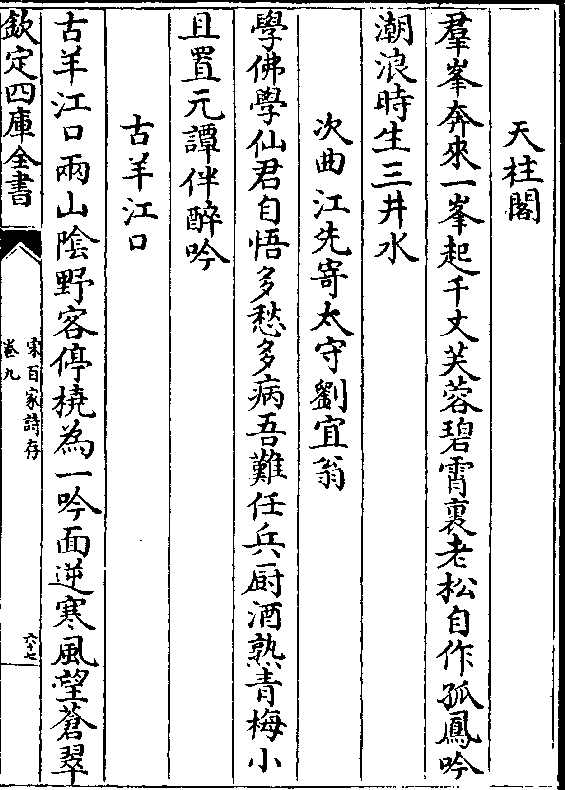 天柱閣
羣峯奔來一峯起千丈芙蓉碧霄裏老松自作孤鳳吟
潮浪時生三井水
次曲江先寄太守劉宜翁
學佛學仙君自悟多愁多病吾難任兵厨酒熟青梅小
且置元譚伴醉吟
古羊江口
古羊江口兩山陰野客停橈為一吟面逆寒風望蒼翠
欽定四庫全書
宋百家詩存
卷九
六十七